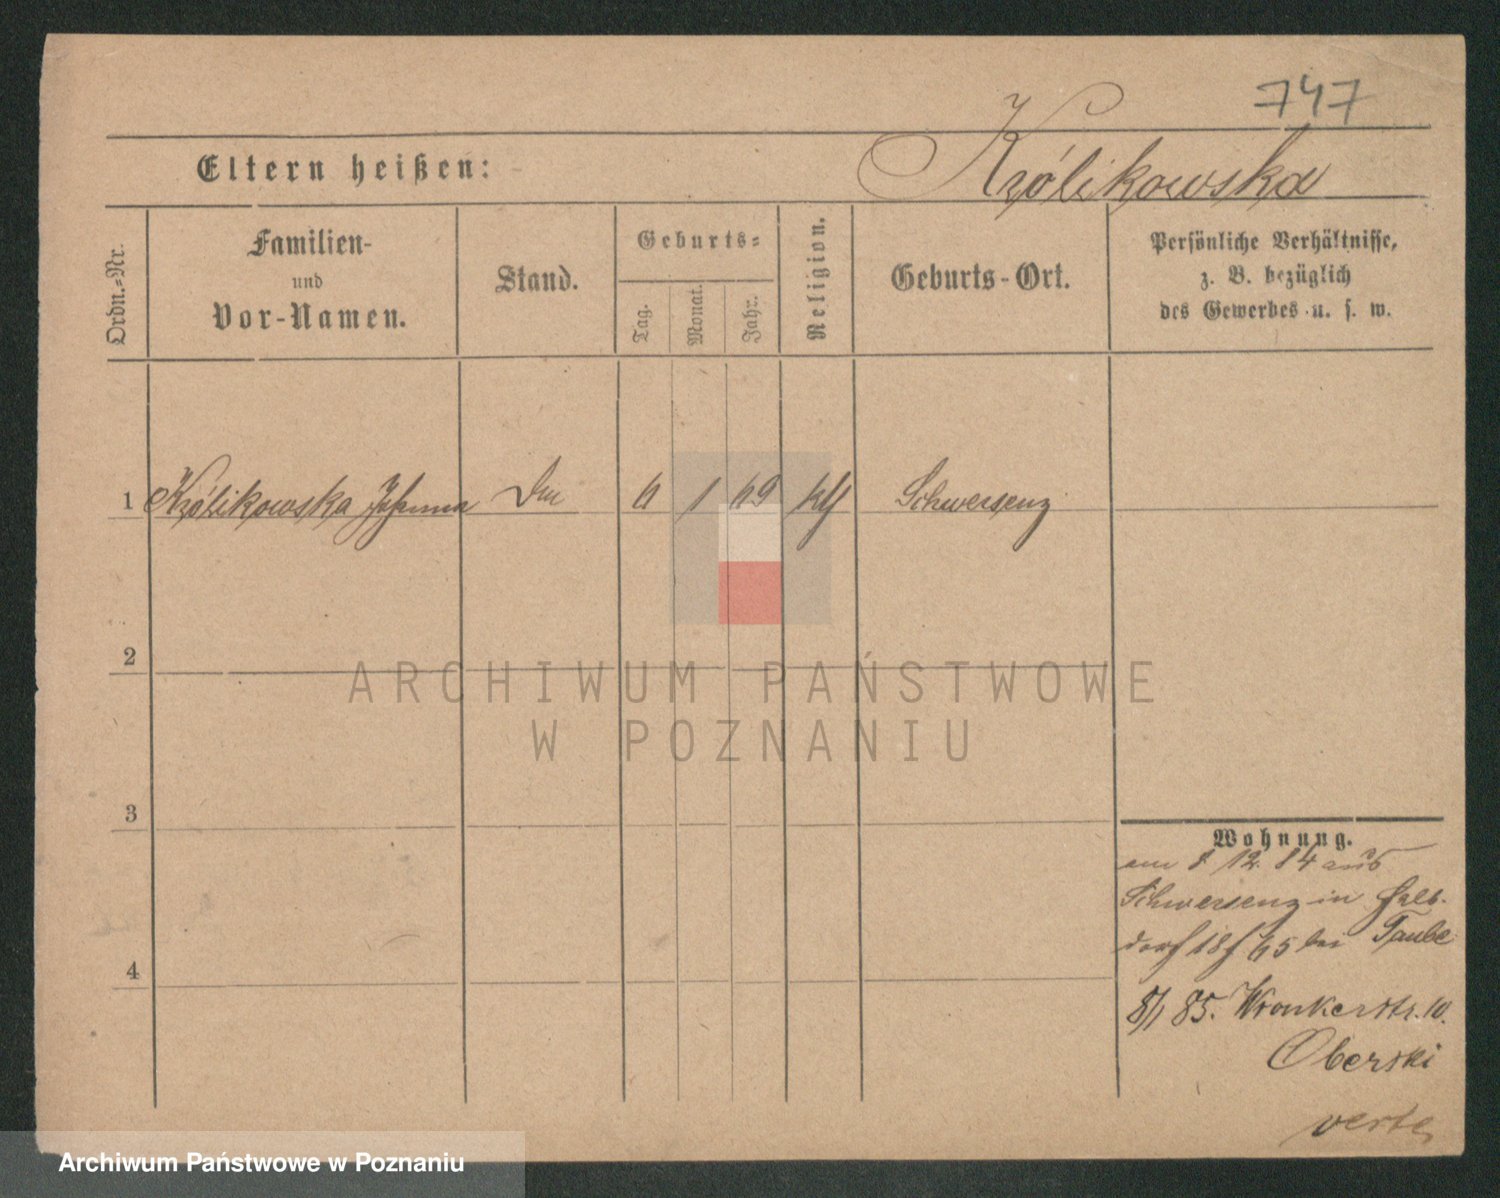 747
Eltern heißen:
Królikowska
Ordn.-Nr.
Familien-
und
Vor-Namen.
Stand.
Geburts-
Tag.
Monat.
Jahr.
Religion.
Geburts-Ort.
Persönliche Verhältnisse,
z. B. bezüglich
des Gewerbes u. s. w.
1 Królikowska Johanna 6 1 69 kth Schwersenz
2
3
4
ARCHIWUM PAŃSTWOWE
W POZNANIU
Wohnung.
am 8 12. 84 aus
Schwersenz in
dorf bei Taube
8/1 85. Wronkerstr. 10.
Oberski
verte
Archiwum Państwowe w Poznaniu